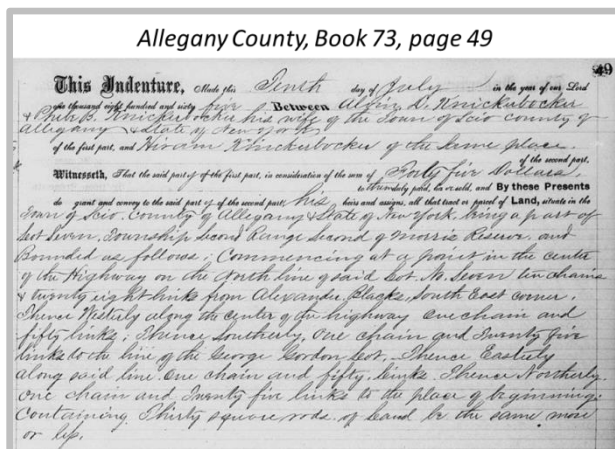 Allegany County, Book 73, page 49
49
This Indenture, Made this Tenth day of July in the year of our Lord
one thousand eight hundred and sixty five Between D. Knickerbocker
& B. Knickerbocker his wife of the Town of Scio county of
Allegany & State of New York
of the first part, and Hiram Knickerbocker of the same place.
of the second part,
Witnesseth, That the said part of the first part, in consideration of the sum of Forty five Dollars,
to duly paid, sold, and By these Presents
do grant and convey to the said part of the second part, his heirs and assigns, all that tract or parcel of Land, situate in the
Town of Scio. County of Allegany & State of New York, being a part of
Lot Seven, Township Second Range Second of Morris Reserve, and
Bounded as follows; Commencing at a point in the center
of the Highway on the North line of said Lot. No. Seven ten chains
& twenty eight links from Alexander Blacks, South East corner.
Thence Westerly along the center of the highway one chain and
fifty links; Thence Southerly, One chain and Twenty five
links to the line of the George Gordon Lot. Thence Easterly
along said line. One chain and fifty. links. Thence Northerly
One chain and Twenty five links to the place of beginning:
Containing Thirty square rods. of land be the same more
or less.